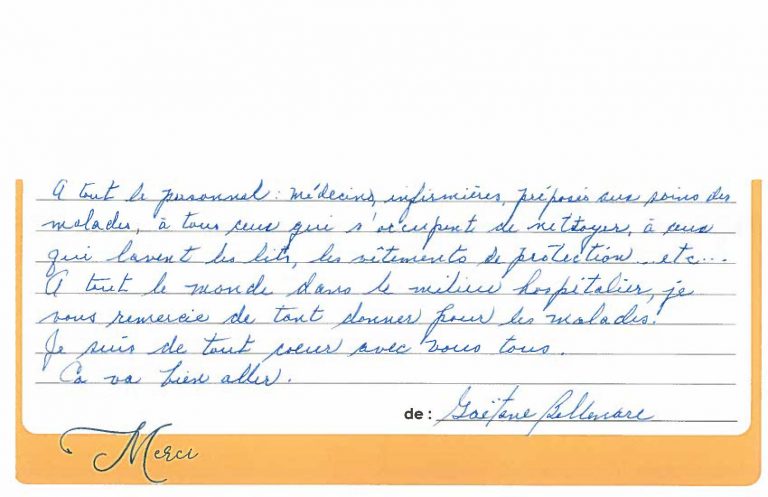 A tout le personnel : médecins, infirmières, préposés aux soins des
malades, à tous ceux qui s'occupent de nettoyer, à ceux
qui lavent les lits, les vêtements de protection...etc...
A tout le monde dans le milieu hospitalier, je
vous remercie de tant donner pour les malades.
Je suis de tout coeur avec vous tous.
Ca va bien aller.
de : Gaëtane Bellemare
Merci